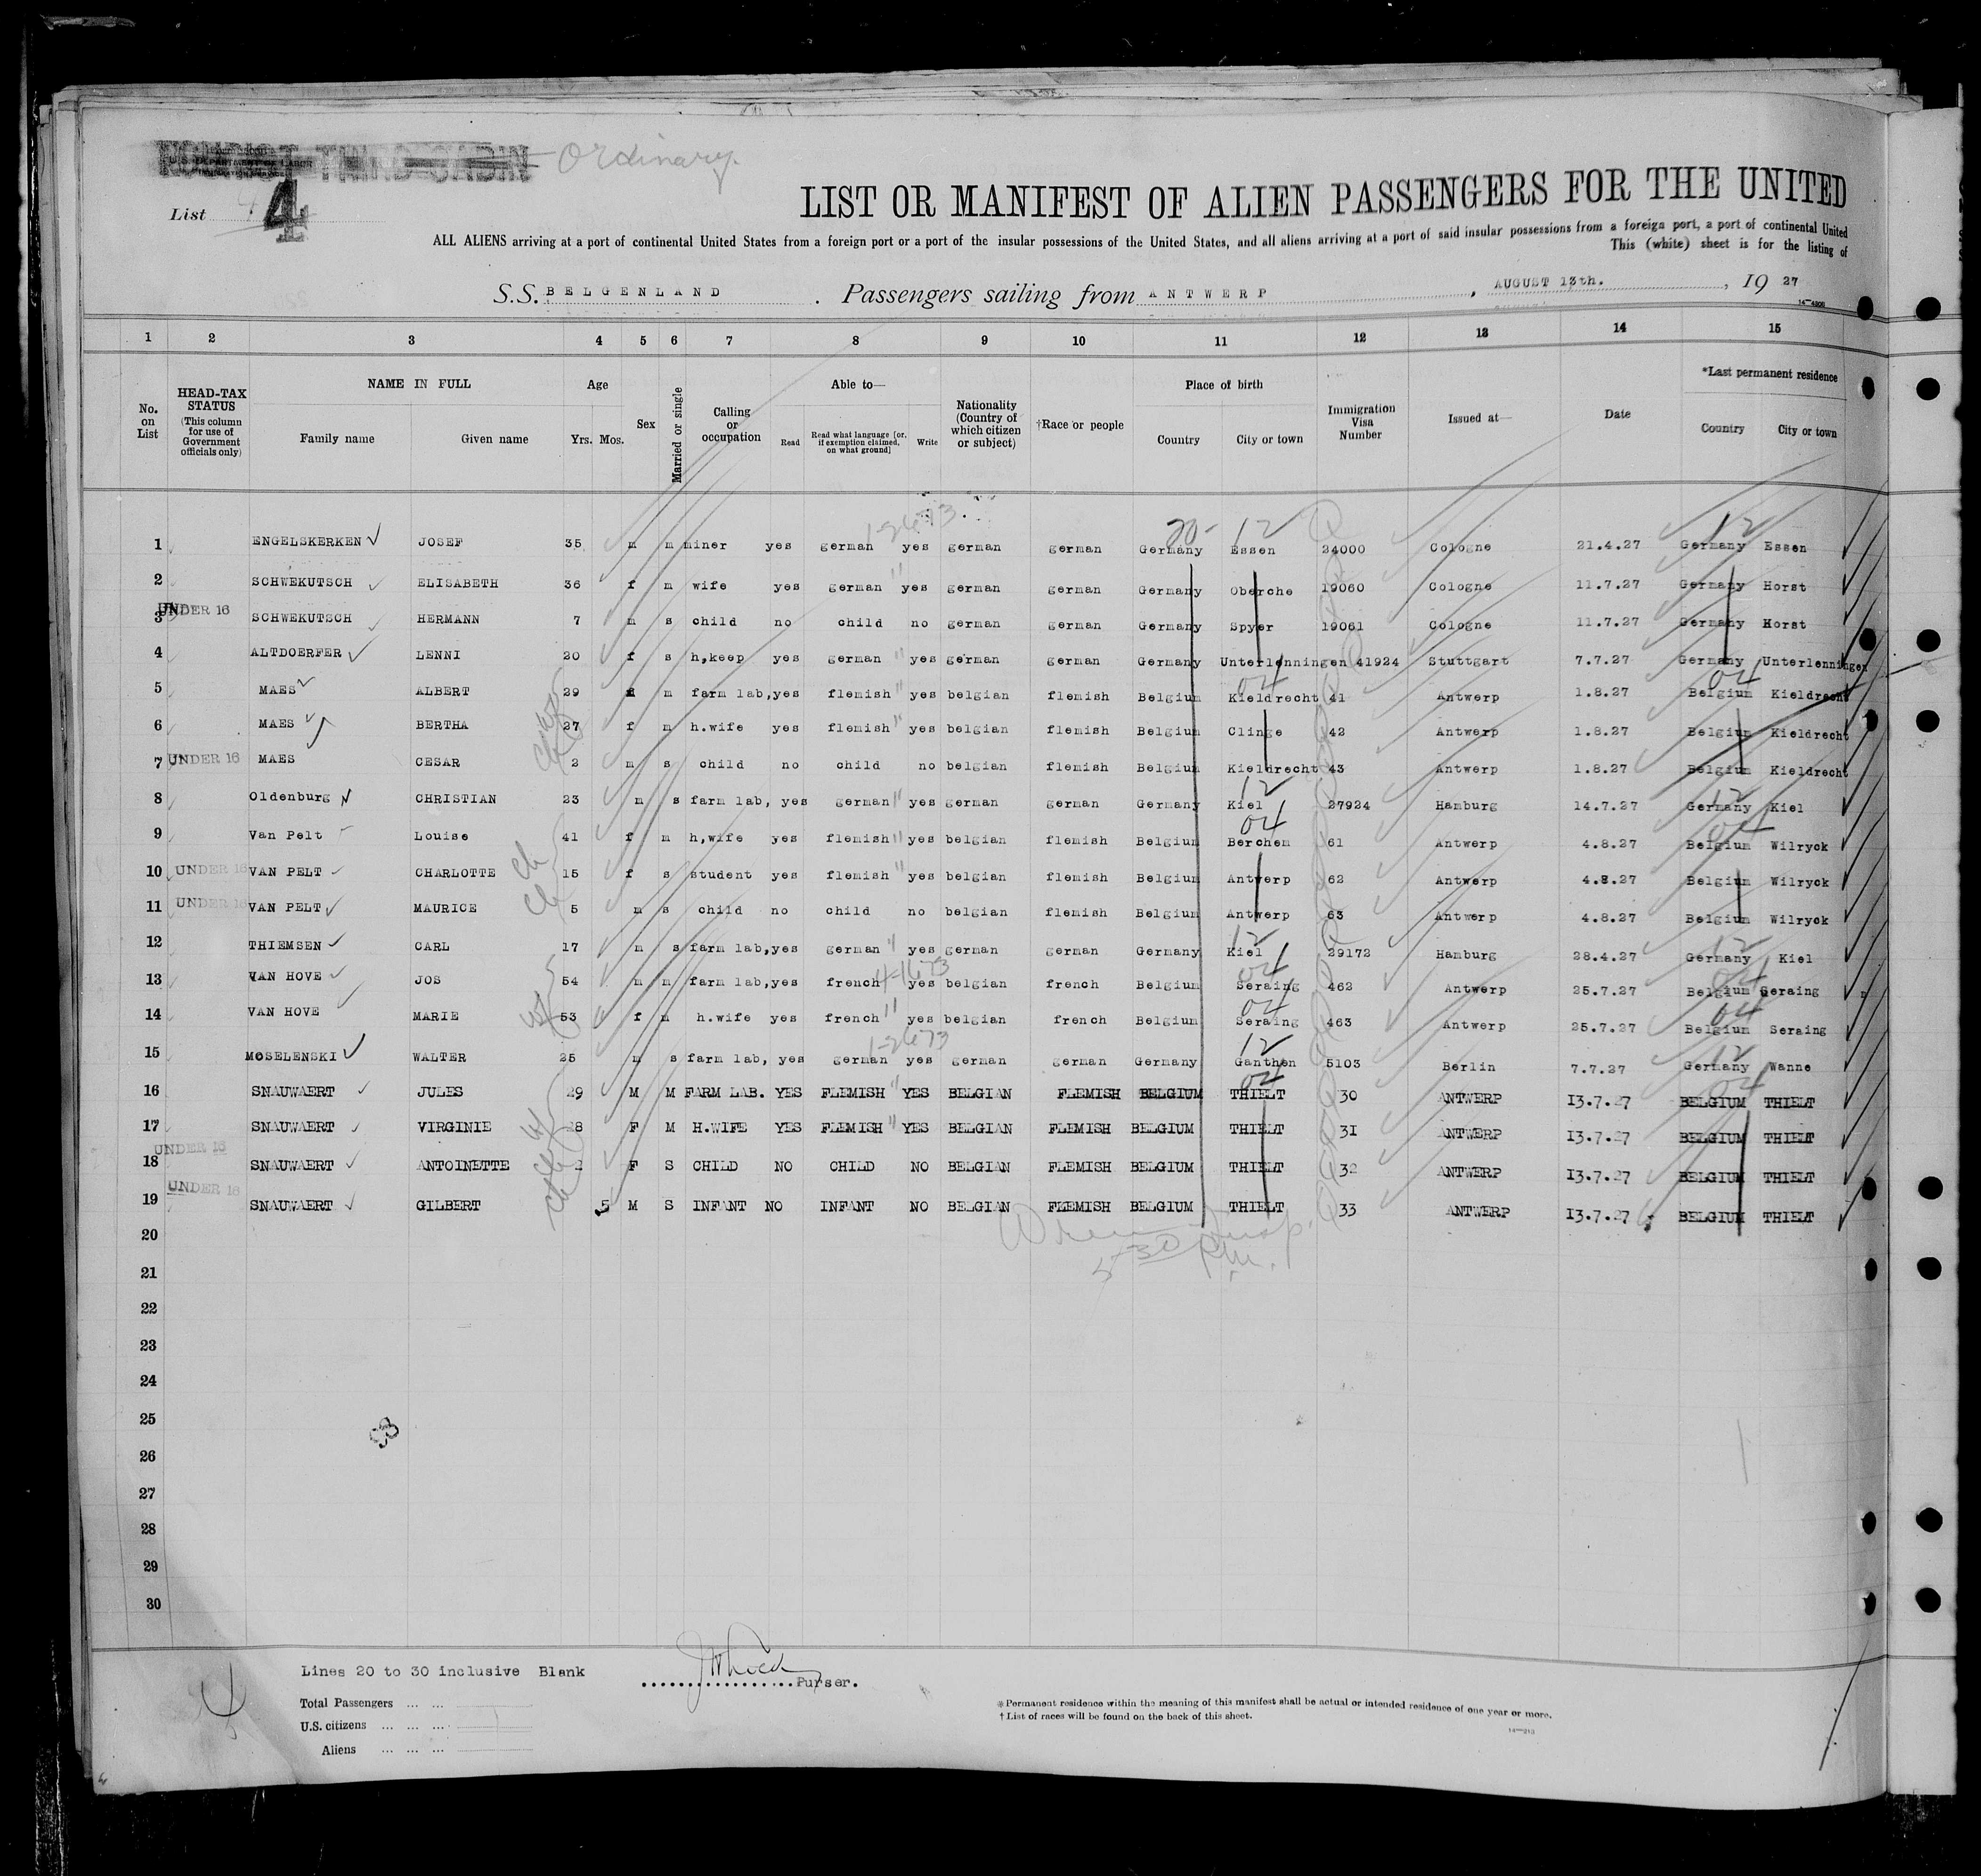 TOURIST THIRD CABIN Ordinary.
U. S. DEPARTMENT OF LABOR
List 4
LIST OR MANIFEST OF ALIEN PASSENGERS FOR THE UNITED
ALL ALIENS arriving at a port of continental United States from a foreign port or a port of the insular possessions of the United States, and all aliens arriving at a port of said insular possessions from a foreign port, a port of continental United
This (white) sheet is for the listing of
S.S. BELGENLAND . Passengers sailing from ANTWERP , AUGUST 13th. , 19 27
1 2 3 4 5 6 7 8 9 10 11 12 13 14 15
No. on List
HEAD-TAX STATUS (This column for use of Government officials only)
NAME IN FULL Family name Given name
Age Yrs. Mos.
Sex
Married or single
Calling or occupation
Able to— Read Read what language [or, if exemption claimed, on what ground] Write
Nationality (Country of which citizen or subject)
†Race or people
Place of birth Country City or town
Immigration Visa Number
Issued at—
Date
*Last permanent residence Country City or town
1-2673 20- 12 12
1 ENGELSKERKEN JOSEF 35 m m miner yes german yes german german Germany Essen 24000 Cologne 21.4.27 Germany Essen
2 SCHWEKUTSCH ELISABETH 36 f m wife yes german " yes german german Germany Oberche 19060 Cologne 11.7.27 Germany Horst
3 UNDER 16 SCHWEKUTSCH HERMANN 7 m s child no child no german german Germany Spyer 19061 Cologne 11.7.27 Germany Horst
4 ALTDOERFER LENNI 20 f s h,keep yes german " yes german german Germany Unterlenningen 41924 Stuttgart 7.7.27 Germany Unterlenningen
04 04
5 MAES ALBERT 29 m m farm lab, yes flemish " yes belgian flemish Belgium Kieldrecht 41 Antwerp 1.8.27 Belgium Kieldrecht
6 MAES BERTHA 27 f m h.wife yes flemish " yes belgian flemish Belgium Clinge 42 Antwerp 1.8.27 Belgium Kieldrecht
7 UNDER 16 MAES CESAR 2 m s child no child no belgian flemish Belgium Kieldrecht 43 Antwerp 1.8.27 Belgium Kieldrecht
12 12
8 Oldenburg CHRISTIAN 23 m s farm lab, yes german " yes german german Germany Kiel 27924 Hamburg 14.7.27 Germany Kiel
04 04
9 Van Pelt Louise 41 f m h,wife yes flemish " yes belgian flemish Belgium Berchem 61 Antwerp 4.8.27 Belgium Wilryck
10 UNDER 16 VAN PELT CHARLOTTE 15 f s student yes flemish " yes belgian flemish Belgium Antwerp 62 Antwerp 4.8.27 Belgium Wilryck
11 UNDER 16 VAN PELT MAURICE 5 m s child no child no belgian flemish Belgium Antwerp 63 Antwerp 4.8.27 Belgium Wilryck
12 12
12 THIEMSEN CARL 17 m s farm lab, yes german " yes german german Germany Kiel 29172 Hamburg 28.4.27 Germany Kiel
4-1673 04 04
13 VAN HOVE JOS 54 m m farm lab, yes french yes belgian french Belgium Seraing 462 Antwerp 25.7.27 Belgium Seraing
04 04
14 VAN HOVE MARIE 53 f m h.wife yes french " yes belgian french Belgium Seraing 463 Antwerp 25.7.27 Belgium Seraing
1-2673 12 12
15 MOSELENSKI WALTER 25 m s farm lab, yes german yes german german Germany Ganthen 5103 Berlin 7.7.27 Germany Wanne
04 04
16 SNAUWAERT JULES 29 M M FARM LAB. YES FLEMISH " YES BELGIAN FLEMISH BELGIUM THIELT 30 ANTWERP 13.7.27 BELGIUM THIELT
17 SNAUWAERT VIRGINIE 28 F M H.WIFE YES FLEMISH " YES BELGIAN FLEMISH BELGIUM THIELT 31 ANTWERP 13.7.27 BELGIUM THIELT
18 UNDER 16 SNAUWAERT ANTOINETTE F S CHILD NO CHILD NO BELGIAN FLEMISH BELGIUM THIELT 32 ANTWERP 13.7.27 BELGIUM THIELT
19 UNDER 16 SNAUWAERT GILBERT 5 M S INFANT NO INFANT NO BELGIAN FLEMISH BELGIUM THIELT 33 ANTWERP 13.7.27 BELGIUM THIELT
20
Insp.
5-30 P.M.
21
22
23
24
25
26
27
28
29
30
Lines 20 to 30 inclusive Blank
Purser.
Total Passengers
U.S. citizens
Aliens
* Permanent residence within the meaning of this manifest shall be actual or intended residence of one year or more.
† List of races will be found on the back of this sheet.